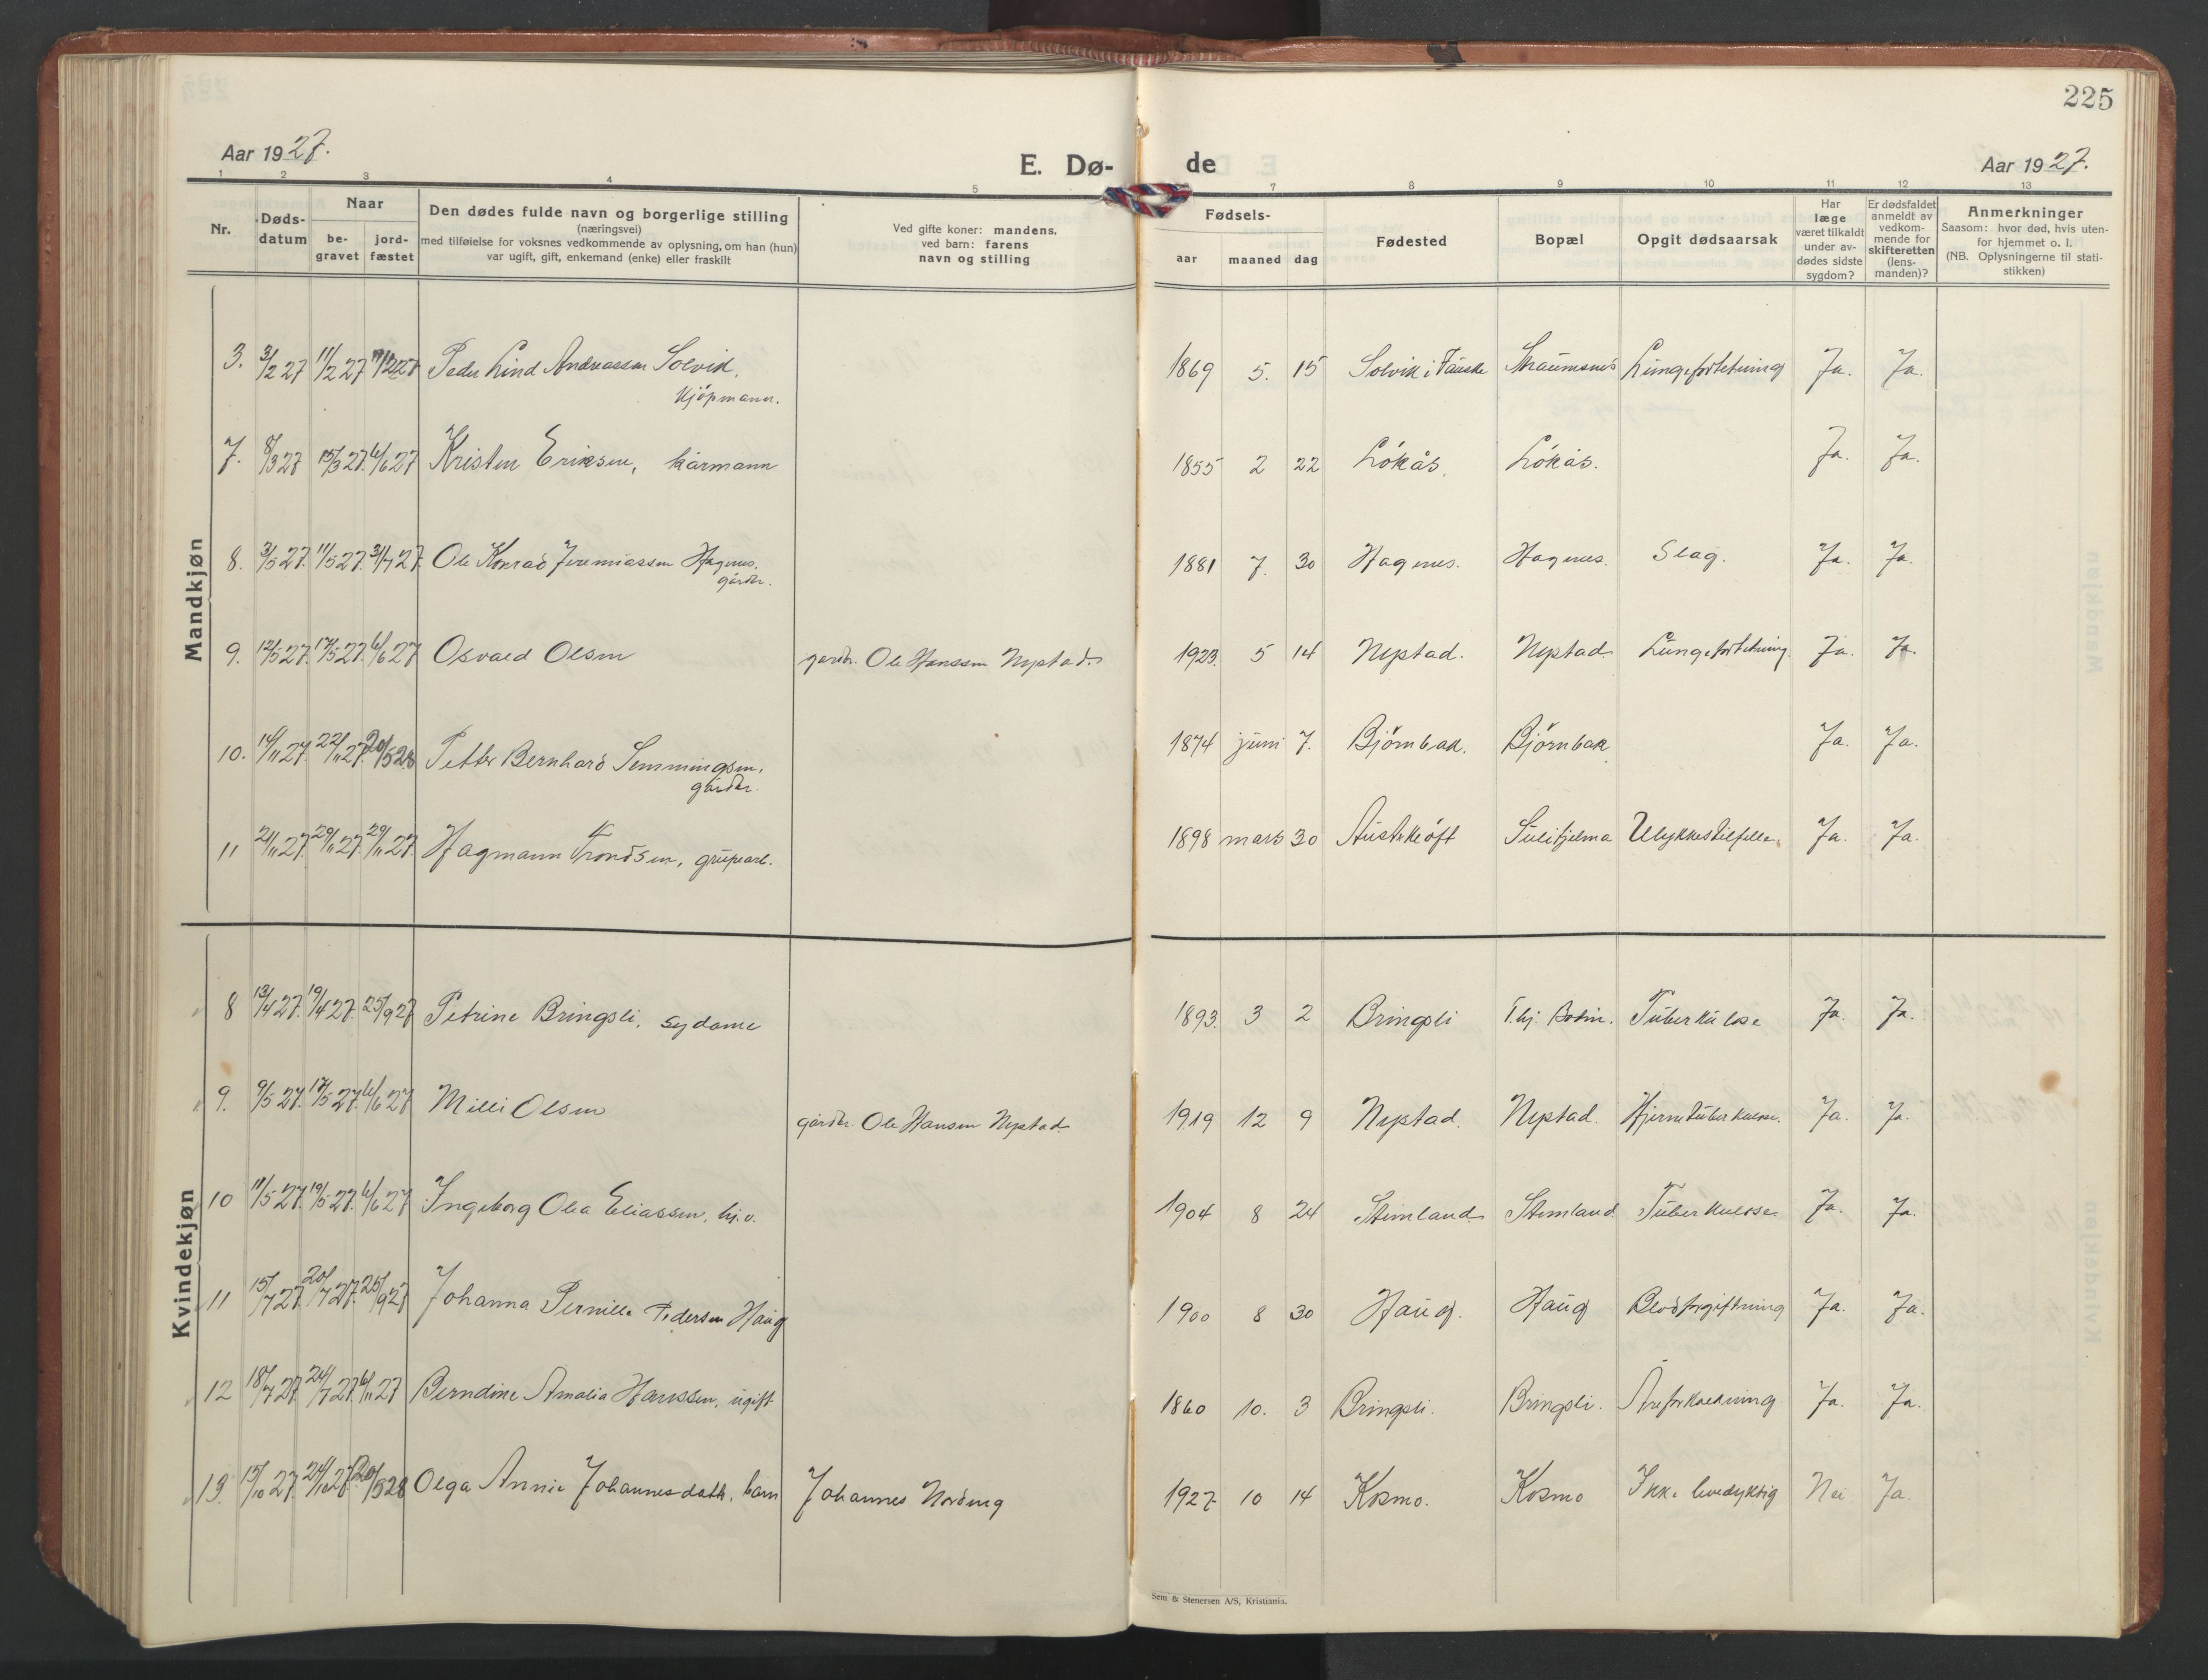 225
Aar 1927.
E. Dø-
de
Aar 1927.
1 2 3 4 5 7 8 9 10 11 12 13
Nr.
Døds-
datum
Naar
be-
gravet
jord-
fæstet
Den dødes fulde navn og borgerlige stilling
(næringsvei)
med tilføielse for voksnes vedkommende av oplysning, om han (hun)
var ugift, gift, enkemand (enke) eller fraskilt
Ved gifte koner: mandens,
ved barn: farens
navn og stilling
Fødsels-
aar maaned dag
Fødested
Bopæl
Opgit dødsaarsak
Har
læge
været tilkaldt
under av-
dødes sidste
sygdom?
Er dødsfaldet
anmeldt av
vedkom-
mende for
skifteretten
(lens-
manden)?
Anmerkninger
Saasom: hvor død, hvis uten-
for hjemmet o. l.
(NB. Oplysningerne til stati-
stikken)
Mandkjøn
3. 3/2 27 11/2 27 Peder Lind Andreassen Solvik, 1869 5. 15 Solvik i Fauske Straumsnes Lungefortetning Ja. Ja.
kjøpmann.
7. 8/3 27 15/3 27. 6/6 27 Kristen Eriksen, kårmann 1855 2 22 Løkås. Løkås. Ja. Ja.
8. 3/5 27. 11/5 27. 31/7 27. Ole Konrad Jeremiassen Hagnes. 1881 7. 30 Hagnes. Hagnes. Slag. Ja. Ja.
gårdbr.
9. 12/5 27. 17/5 27. 6/6 27 Osvald Olsen gardbr. Ole Hanssen Nystad. 1923. 5 14 Nystad. Nystad. Lungefortetning. Ja. Ja.
10. 14/11 27. 22/11 27. 20/5 28 Petter Bernhard Semmingsen, 1874 juni 7. Bjørnbak. Bjørnbak. Ja. Ja.
gårdbr.
11 21/11 27. 29/11 27. 29/11 27. Hagmann Trondsen, grupearb. 1898 mars 30 Austekeøft Sulitjelma Ulykkestilfelle. Ja. Ja.
Kvindekjøn
8 13/4 27. 19/4 27. 25/9 27 Petrine Bringsli, sydame 1893. 3 2 Bringsli T.hj. Bodin. Tuberkulose Ja. Ja.
9. 9/5 27. 17/5 27. 6/6 27 Milli Olsen gårdbr. Ole Hansen Nystad 1919 12 9 Nystad. Nystad. Hjernetuberkulose. Ja. Ja.
10 11/5 27. 19/5 27. 6/6 27 Ingeborg Olea Eliassen, hj.v. 1904 8 24 Stemland Stemland Tuberkulose Ja. Ja.
11 15/7 27. 20/7 27. 25/9 27 Johanna Pernille Pedersen Haug 1900 8 30 Haug. Haug Blodforgiftning Ja. Ja.
12 18/7 27 24/7 27. 6/11 27 Berndine Amalia Hanssen, ugift 1860 10. 3 Bringsli. Bringsli. Åreforkalkning Ja. Ja.
13. 15/10 27. 24/10 27. 20/5 28 Olga Annie Johannesdatter, barn Johannes 1927 10 14 Kosmo. Kosmo Ikke levedyktig Nei Ja.
Sem & Stenersen A/S, Kristiania.